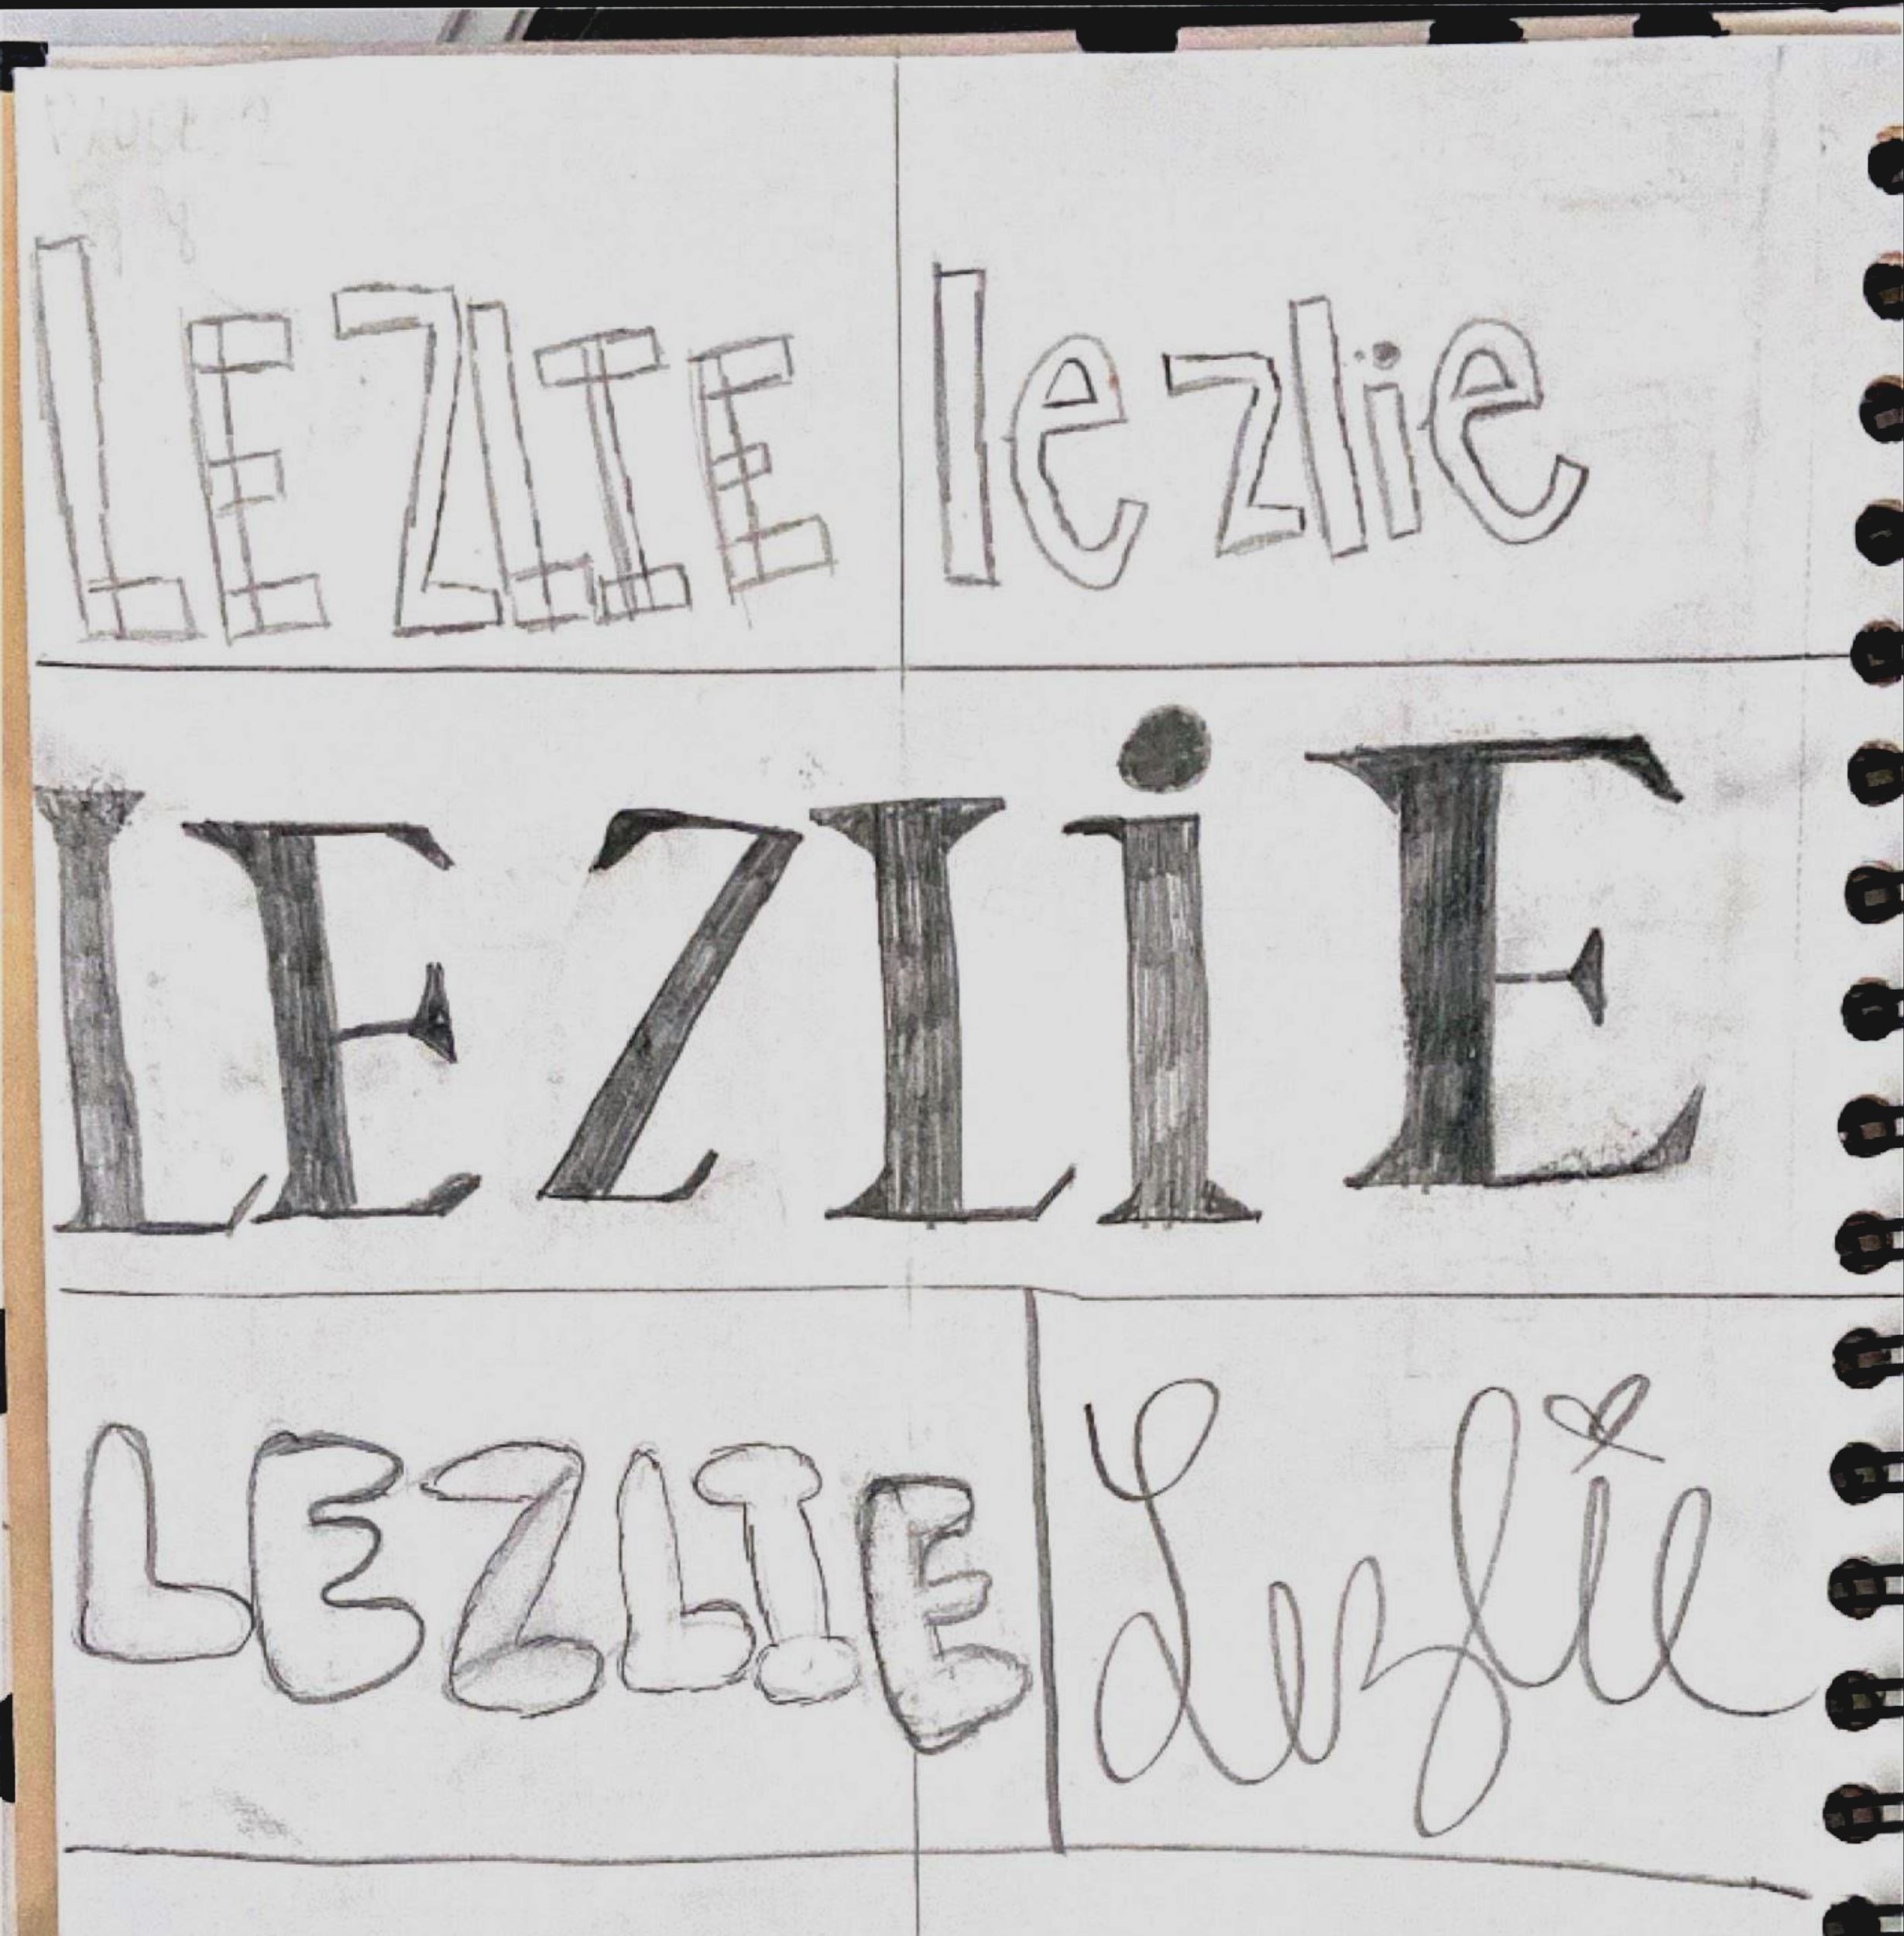 LEZLIE
lezlie
lEZLiE
LEZLIE
Lezlie